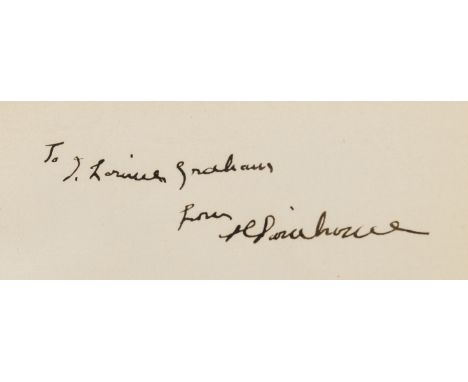 To
J. Lorimer Graham
from